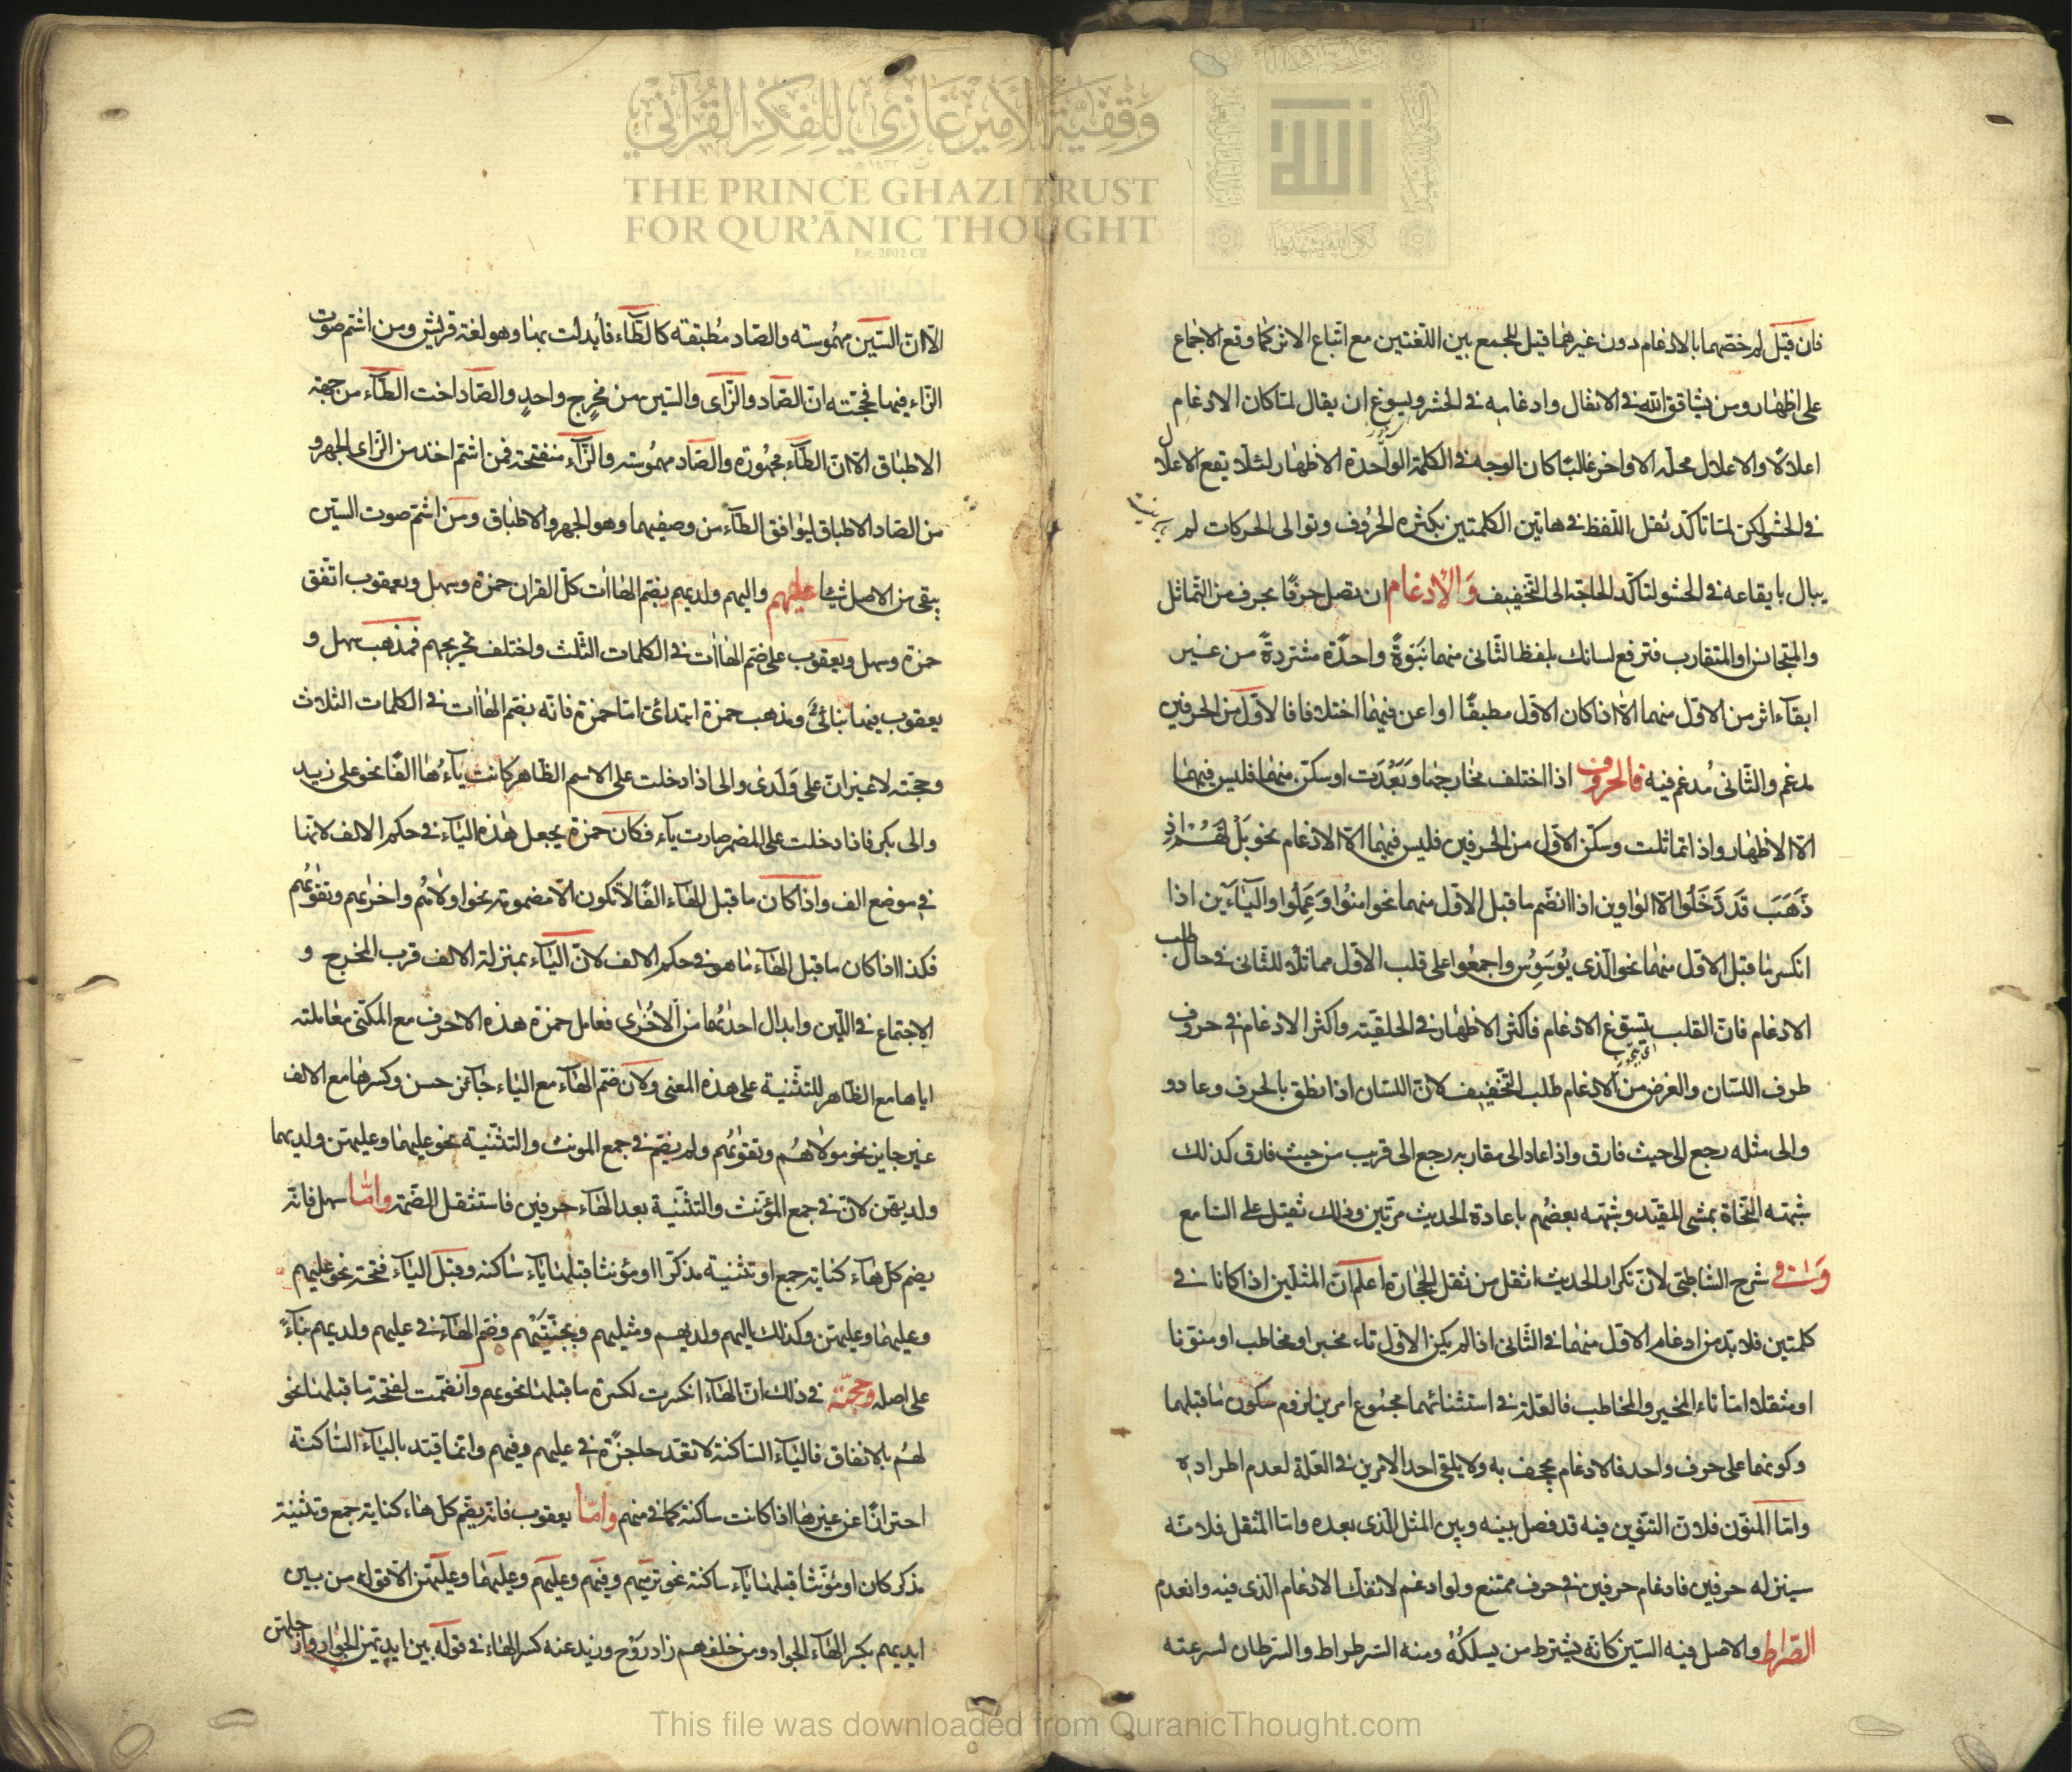 وقفية الأمير غازي للفكر القرآني
THE PRINCE GHAZI TRUST
FOR QUR'ĀNIC THOUGHT
Est. 2012 CE
فان قيل لم خصهما بالادغام دون غيرهما قيل للجمع بين اللغتين مع اتباع الاثر كما وقع الاجماع
على اظهار ومن يشاقق الله في الانفال وادغامه في الحشر ويسوغ ان يقال لما كان الادغام
اعلالا والاعلال محله الاواخر غالبا كان الوجه في الكلمة الواحدة الاظهار لئلا يقع الاعلال
في الحشو لكن لما تاكد ثقل اللفظ في هاتين الكلمتين بكثرة الحروف وتوالى الحركات لم
يبال بايقاعه في الحشو لتاكد الحاجة الى التخفيف وَالادغام ان تصل حرفا بحرف من التماثل
والمتجانس او المتقارب فترفع لسانك بلفظ الثانى منهما نَبَوةً واحدًة مشددةً من غير
ابقاء اثر من الاول منهما الا اذا كان الاول مطبقًا او اغن ففيهما اختلاف فالاول من الحرفين
مدغم والثانى مُدغم فيه فالحروف اذا اختلف مخارجها وَبَعُدَت او سكن منهما فليس فيهما
الا الاظهار واذا تماثلت وسكن الاول من الحرفين فليس فيهما الا الادغام نحو بَلْ لَهُم اذ
ذَهَبَ قَد دَخَلُوا الا الواوين اذا انضم ما قبل الاول منهما نحو امنُوا وَعَمِلُوا والياءين اذا
انكسر ما قبل الاول منهما نحو الذى يُوَسوِسُ واجمعُوا على قلب الاول مماثلا للثانى في حال طلب
الادغام فان القلب يسوغ الادغام فاكثر الاظهار في الحلقية واكثر الادغام في حروف
طرف اللسان والغرض من الادغام طلب التخفيف لان اللسان اذا نطق بالحرف وعاد و
والى مثله رجع الى حيث فارق واذا عاد الى مقاربه رجع الى قريب من حيث فارق كذلك
شبهته النحاة بمشى المقيد وشبهه بعضهم باعادة الحديث مرتين وذلك ثقيل على السامع
شرح الشاطبى لان تكرار الحديث اثقل من ثقل الحجارة اعلم ان المثلين اذا كانا في
كلمتين فلا بد من ادغام الاول منهما في الثانى اذا لم يكن الاول تاء مخبر او مخاطب او منونا
او مثقلا اما تاء المخبر والمخاطب فالعلة في استثنائهما مجموع امرين لزوم سكون ما قبلهما
وكونهما على حرف واحد فالادغام يجحف به ولا يلقى احد الامرين في العلة لعدم اطراده
واما المنون فلان التنوين فيه قد فصل بينه وبين المثل الذى بعده واما المثقل فلانه
بمنزله حرفين فادغام حرفين في حرف ممتنع ولو ادغم لانفك الادغام الذى فيه وانعدم
الصراط والاصل فيه السين كانه يشترط من يسلكُهُ ومنه السرطراط والسرطان لسرعته
الا ان السين مهموسته والصاد مُطبقته كالطاء فابدلت بها وهو لغة قريش ومن اشم صوت
الزاء فيهما فحجته ان الصاد والزاى والسين من مخرج واحدٍ والصاد اخت الطاء من جهة
الاطباق الا ان الطاء مجهورة والصاد مهموسة والزاء منفتحة فمن اشم اخذ من الزاى الجهر و
من الصاد الاطباق ليوافق الطاء من وصفيهما وهو الجهر والاطباق ومن اشم صوت السين
يبقى من الاصل شيئا عليهم واليهم ولديهم بضم الهاات كل القران حمزة وسهل ويعقوب اتفق
حمزة وسهل ويعقوب على ضم الهاات في الكلمات الثلث واختلف تخريجهم فمذهب سهل و
يعقوب فيها بنائىٌّ ومذهب حمزة ابتدائى اما حمزة فانه يضم الهاات في الكلمات الثلاث
وحجته لا غير ان على وَلَدى والى اذا دخلت على الاسم الظاهر كانت ياءُها الفًا نحو على زيد
والى بكر فاذا دخلت على المضمر صارت ياء فكان حمزة يجعل هذه الياء في حكم الالف لانها
في موضع الف واذا كان ما قبل الهاء الفًا لا تكون الا مضمومة نحو اولاهُم واخراهم وتقواهُم
فكذا اذا كان ما قبل الهاء ما هو في حكم الالف لان الياء بمنزلة الالف قرب المخرج و
الاجتماع في اللين وابدال احدٰهُما من الاُخرٰى فعامل حمزة هذه الاحرف مع المكنى معاملته
اياها مع الظاهر للتثنية على هذه المعنى ولان ضم الهاء مع الياء جائز حسن وكسرها مع الالف
غير جايز نحو مولاهُم وتقواهُم ولم يضم في جمع المونث والتثنية نحو عليهما وعليهن ولديهما
ولديهن لان في جمع المؤنث والتثنية بعد الهاء حرفين فاستثقل الضمة واما سهل فانه
يضم كل هاء كناية جمع او تثنية مذكرا او مؤنثا قبلها ياء ساكنة وقبل الياء فتحة نحو عليهم
وعليهما وعليهن وكذلك اليهم ولديهم ومثليهم وبجنتيهم وضم الهاء في عليهم ولديهم بناءً
على اصله وحجته في ذلك ان الهاء انكسرت لكسرة ما قبلها نحو بهم وانضمت لفتحة ما قبلها نحو
لهُم بالاتفاق فالياء الساكنة لا تعد حاجزًة في عليهم وفيهم وانما قيد بالياء الساكنة
احترازًا عن غيرها اذا كانت ساكنة كما في منهم واما يعقوب فانه يضم كل هاء كناية جمع وتثنية
مذكر كان او مؤنثا قبلها ياء ساكنة نحو نريهم وفيهم وعليهم وعليهما وعليهن الا قوله من بين
ايديهم بكسر الهاء الجواد ومن خلفهم زاد روح وزيد عنه كسر الهاء في قوله بين ايديهن
This file was downloaded from QuranicThought.com